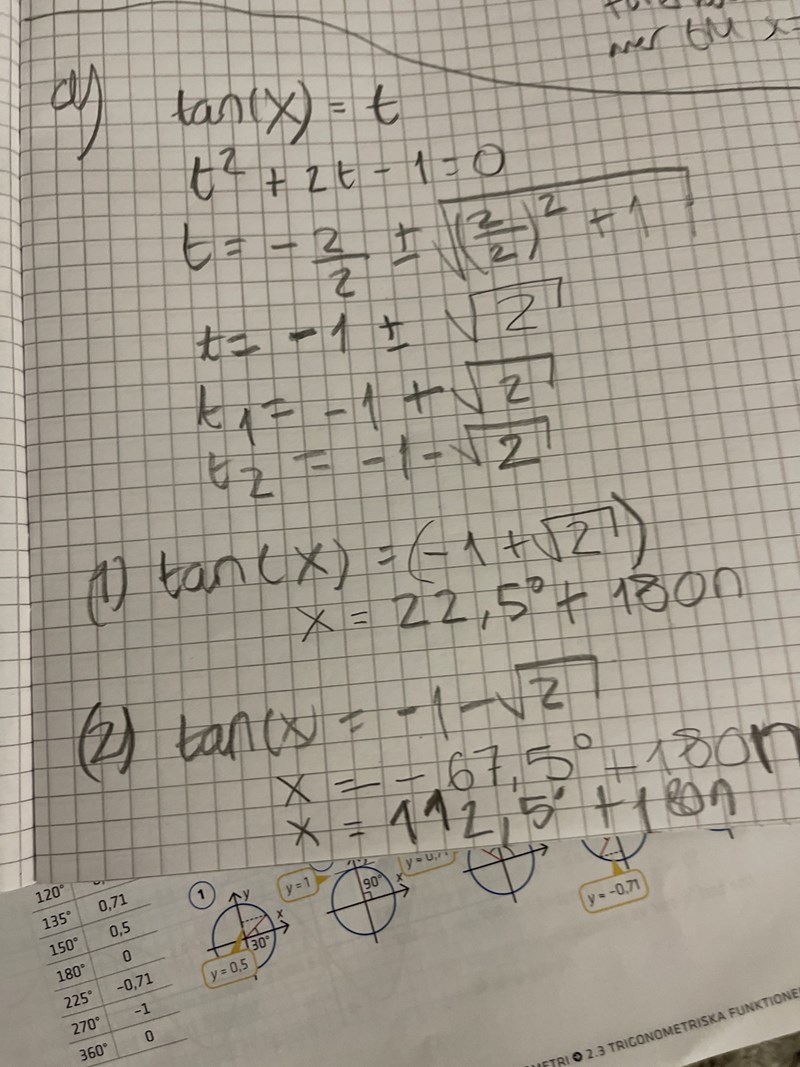 mer än x=
d) tan(x) = t
t² + 2t - 1 = 0
t = - 2/2 ± √((2/2)² + 1)
t = -1 ± √2
t₁ = -1 + √2
t₂ = -1 - √2
(1) tan(x) = (-1 + √2)
x = 22,5° + 180n
(2) tan(x) = -1 - √2
x = - 67,5° + 180n
x = 112,5° + 180n
120°
135° 0,71
150° 0,5
180° 0
225° -0,71
270° -1
360° 0
1
y
x
30°
y = 0,5
y = 1
90°
x
y = 0,71
y = -0,71
METRI 2.3 TRIGONOMETRISKA FUNKTIONE